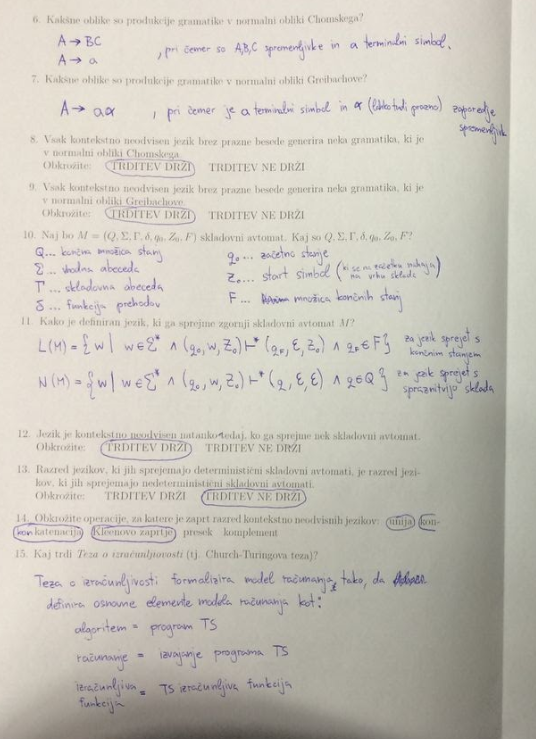 6. Kakšne oblike so produkcije gramatike v normalni obliki Chomskega?
A → BC
A → a , pri čemer so A,B,C spremenljivke in a terminalni simbol.
7. Kakšne oblike so produkcije gramatike v normalni obliki Greibachove?
A → aα , pri čemer je a terminalni simbol in α (lahko tudi prazno) zaporedje
spremenljivk
8. Vsak kontekstno neodvisen jezik brez prazne besede generira neka gramatika, ki je
v normalni obliki Chomskega.
Obkrožite: TRDITEV DRŽI TRDITEV NE DRŽI
9. Vsak kontekstno neodvisen jezik brez prazne besede generira neka gramatika, ki je
v normalni obliki Greibachove.
Obkrožite: TRDITEV DRŽI TRDITEV NE DRŽI
10. Naj bo M = (Q, Σ, Γ, δ, q₀, Z₀, F) skladovni avtomat. Kaj so Q, Σ, Γ, δ, q₀, Z₀, F?
Q... končna množica stanj q₀... začetno stanje
Σ... vhodna abeceda Z₀... start simbol (ki se na začetku nahaja
na vrhu sklada)
Γ... skladovna abeceda F... množica končnih stanj
δ... funkcija prehodov
11. Kako je definiran jezik, ki ga sprejme zgornji skladovni avtomat M?
L(M) = {w | w∈Σ* ∧ (q₀, w, Z₀) ⊢* (q_F, ε, Z₀) ∧ q_F∈F} za jezik sprejet s
končnim stanjem
N(M) = {w | w∈Σ* ∧ (q₀, w, Z₀) ⊢* (q, ε, ε) ∧ q∈Q} za jezik sprejet s
spraznitvijo sklada
12. Jezik je kontekstno neodvisen natanko tedaj, ko ga sprejme nek skladovni avtomat.
Obkrožite: TRDITEV DRŽI TRDITEV NE DRŽI
13. Razred jezikov, ki jih sprejemajo deterministični skladovni avtomati, je razred jezi-
kov, ki jih sprejemajo nedeterministični skladovni avtomati.
Obkrožite: TRDITEV DRŽI TRDITEV NE DRŽI
14. Obkrožite operacije, za katere je zaprt razred kontekstno neodvisnih jezikov: unija kon-
katenacija Kleenovo zaprtje presek komplement
15. Kaj trdi Teza o izračunljivosti (tj. Church-Turingova teza)?
Teza o izračunljivosti formalizira model računanja, tako, da
definira osnovne elemente modela računanja kot:
algoritem = program TS
računanje = izvajanje programa TS
izračunljiva = TS izračunljiva funkcija
funkcija